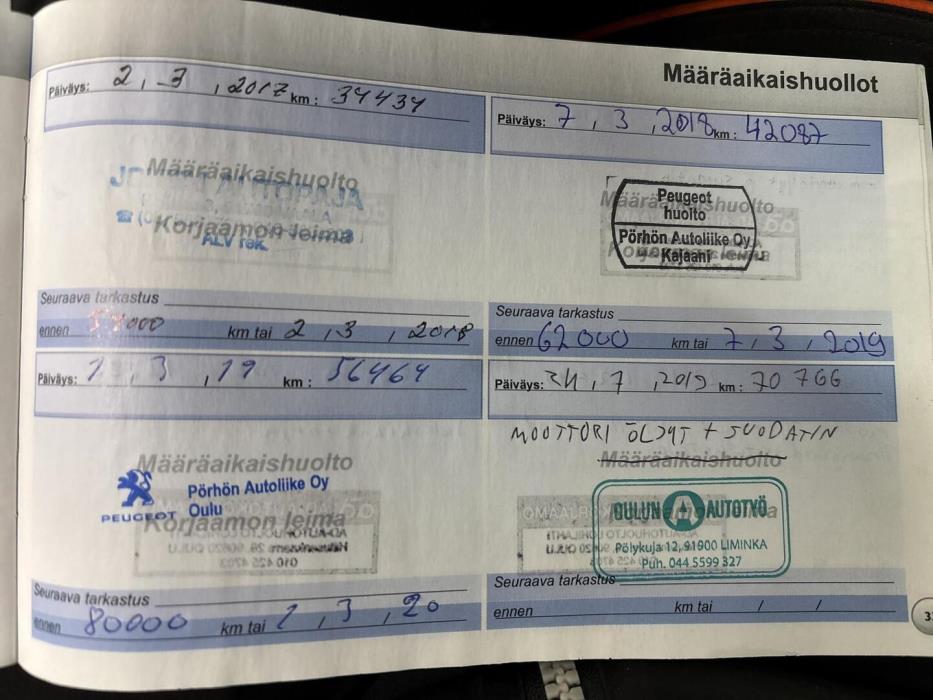 Määräaikaishuollot
Päiväys: 2, 3, 2017 km: 34434
Määräaikaishuolto
Korjaamon leima
ALV rek.
Seuraava tarkastus
ennen 54000 km tai 2, 3, 2018
Päiväys: 7, 3, 2018 km: 42087
Määräaikaishuolto
Peugeot
huolto
Pörhön Autoliike Oy
Kajaani
Korjaamon leima
Seuraava tarkastus
ennen 62000 km tai 7, 3, 2019
Päiväys: 1, 3, 19 km: 56464
Määräaikaishuolto
Pörhön Autoliike Oy
Oulu
PEUGEOT
Korjaamon leima
Seuraava tarkastus
ennen 80000 km tai 1, 3, 20
Päiväys: 24, 7, 2019 km: 70 766
MOOTTORI ÖLJYT + SUODATIN
Määräaikaishuolto
OULUN A AUTOTYÖ
Pölykuja 12, 91900 LIMINKA
Puh. 044 5599 327
Seuraava tarkastus
ennen km tai / /